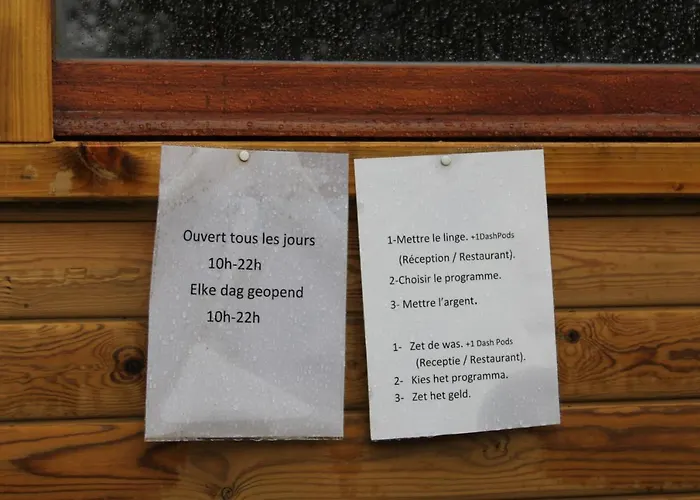 Ouvert tous les jours
10h-22h
Elke dag geopend
10h-22h
1-Mettre le linge. +1DashPods
(Réception / Restaurant).
2-Choisir le programme.
3- Mettre l'argent.
1- Zet de was. +1 Dash Pods
(Receptie / Restaurant).
2- Kies het programma.
3- Zet het geld.